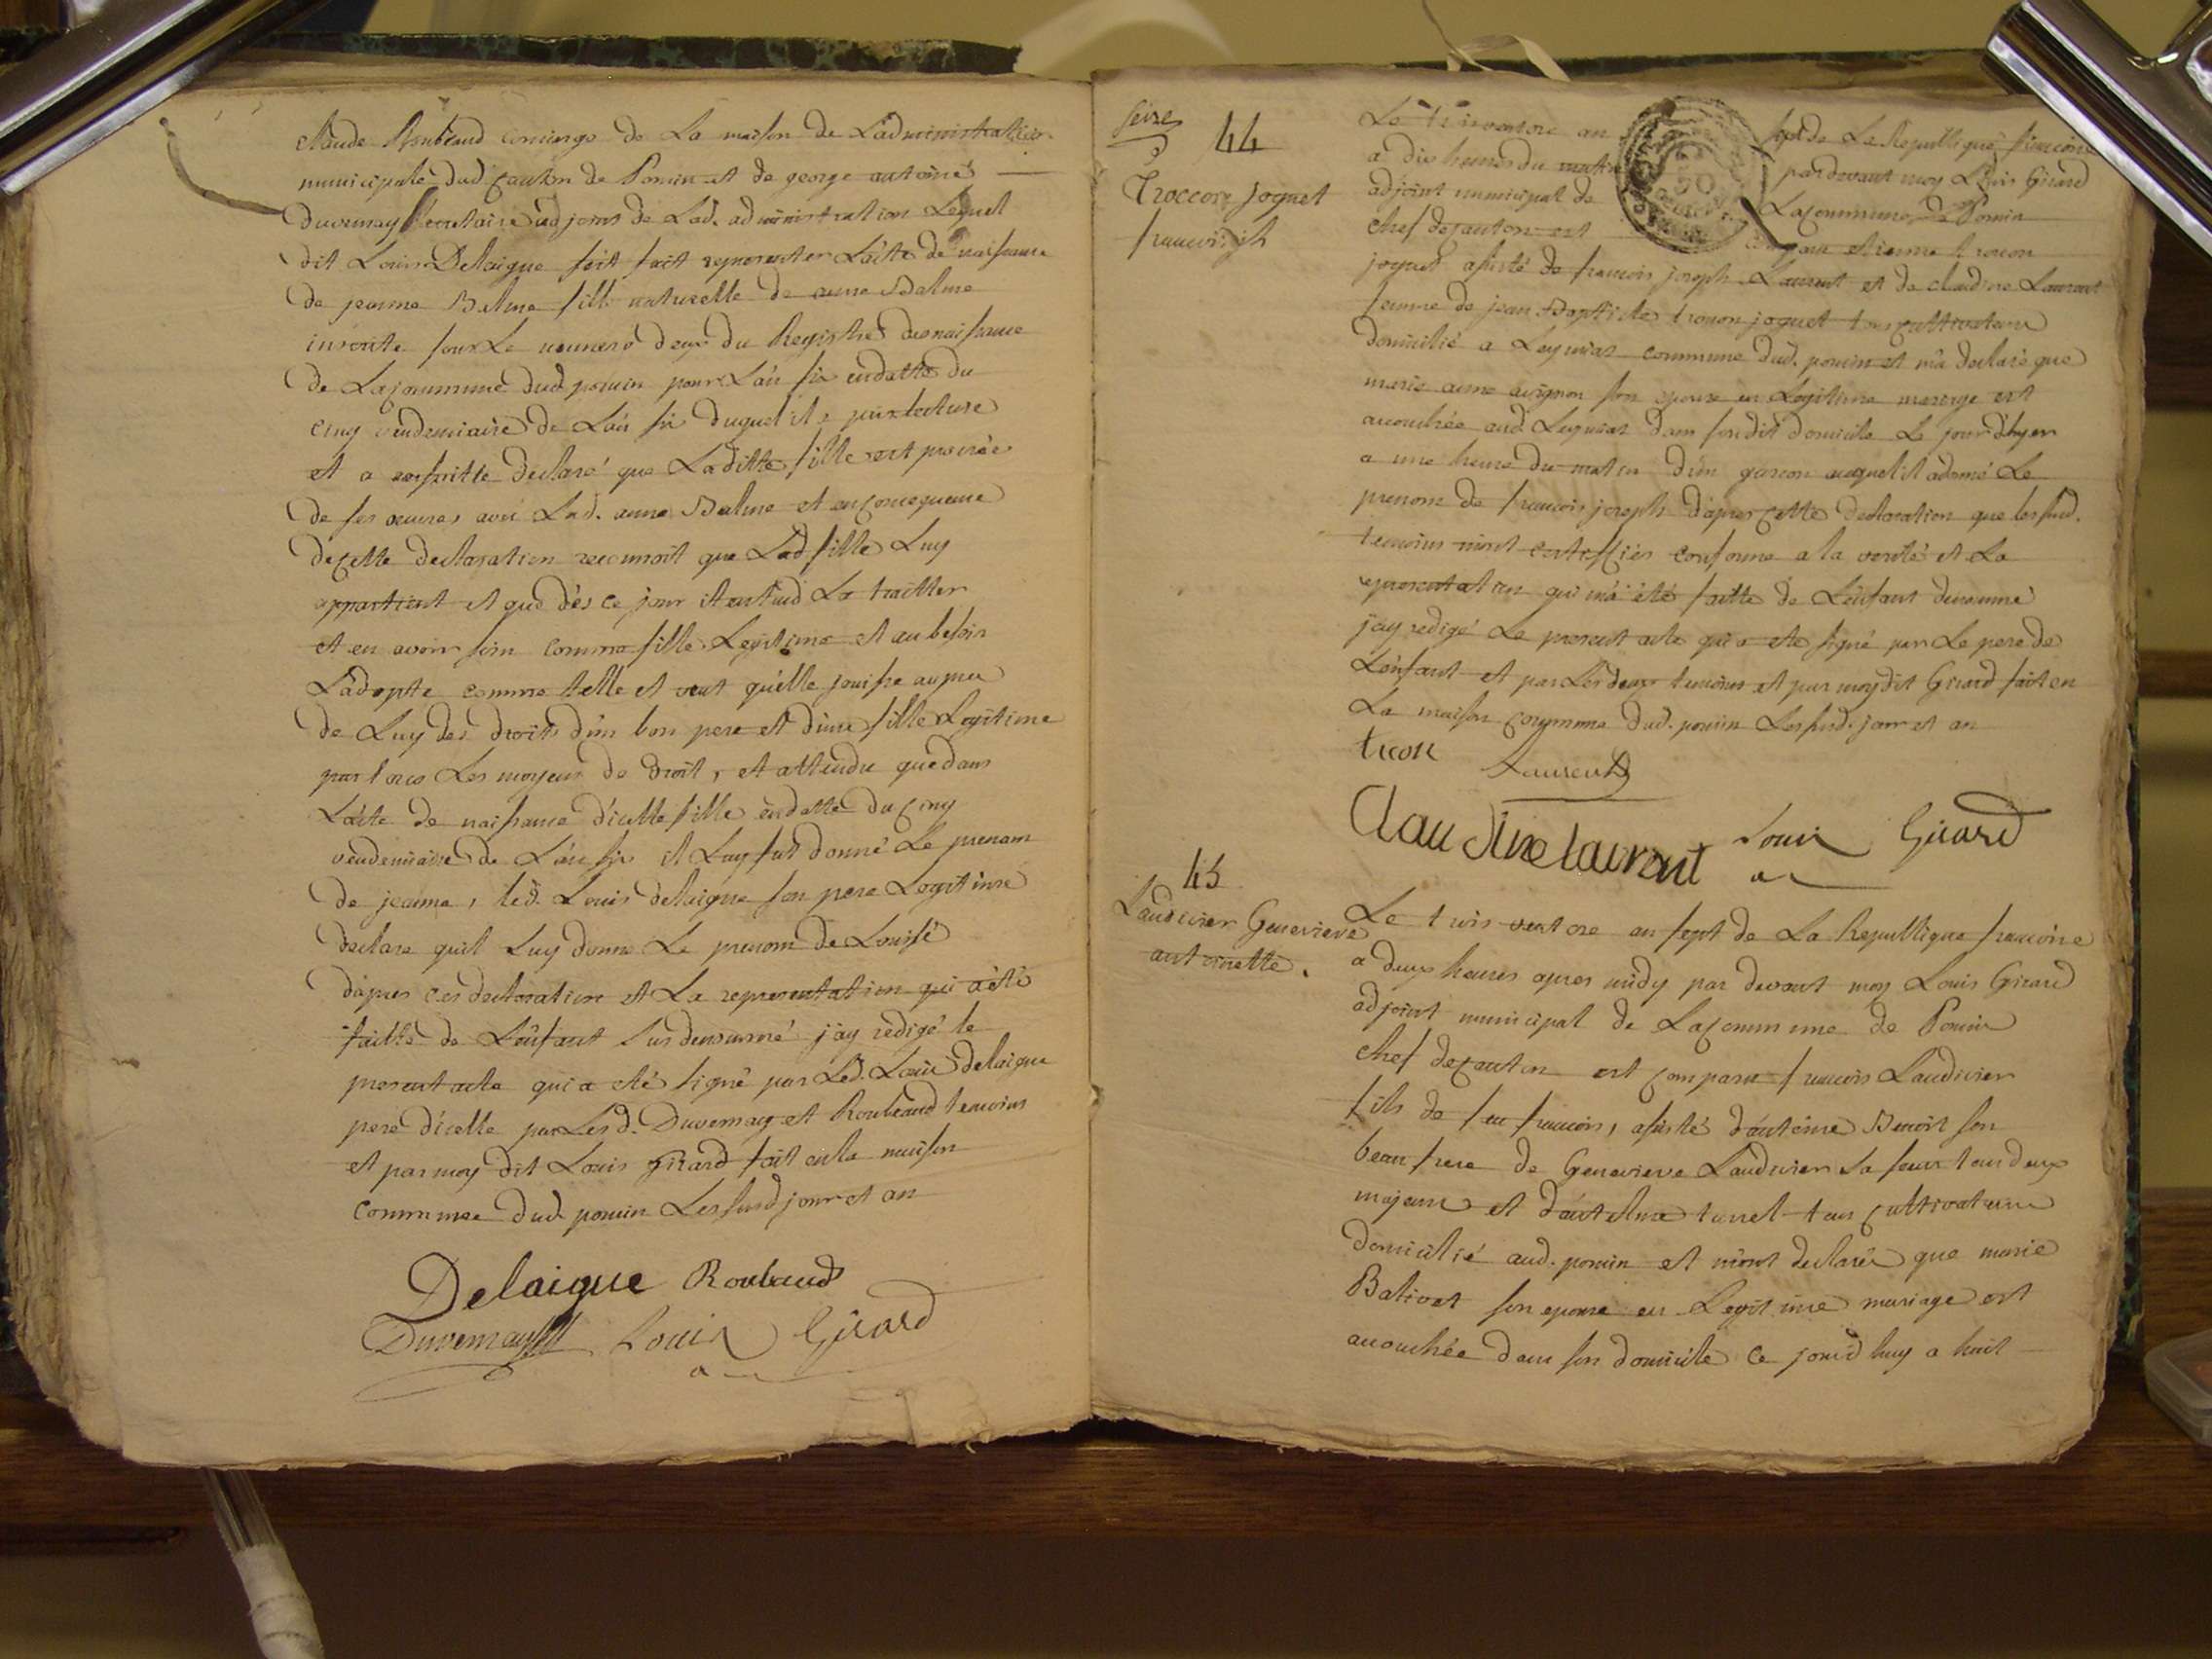 claude Roubeaud concierge de La maison de L'administration
municipale dud canton de Poncin et de george antoine
Duvernay secretaire adjoint de Lad. administration Lequel
dit Louis Delaigue s'est fait representer L'acte de naissance
de jeanne Balme fille naturelle de anne Balme
inscrite sous Le numero deux du Registre de naissance
de La commune dud poncin pour L'an six en datte du
cinq vendemiaire de L'an six duquel il a pris lecture
et a ensuitte declaré que Laditte fille est procrée
de ses œuvres avec Lad. anne Balme et en consequence
de cette declaration reconnoit que Lad fille Luy
appartient et que dès ce jour il entend La traitter
et en avoir soin comme fille Legitime et au besoin
L'adopte comme telle et veut qu'elle jouisse aupres
de Luy des droits d'un bon pere et d'une fille Legitime
par tous Les moyens de droit, et attendu que dans
L'acte de naissance d'icelle fille en datte du cinq
vendemiaire de L'an six il Luy fut donné Le prenom
de jeanne, led. Louis delaigue son pere Legitime
declare qu'il Luy donne Le prenom de Louise
d'apres ces declaration et La representation qui a été
faitte de L'enfant sus denommé j'ay redigé le
present acte qui a eté signé par Led. Louis delaigue
pere d'icelle par Lesd. Duvernay et Roubeaud temoins
et par moy dit Louis Girard fait en la maison
commune dud poncin Les susd jour et an
Delaigue Roubaud
Duvernay Louis Girard
Seize
44
Troccon Joguet
francois jh
Le trois ventose an sept de La Republique francoise
a dix heures du matin pardevant moy Louis Girard
adjoint municipal de La commune de Poncin
chef de canton est comparu etienne trocon
joguet assisté de francois joseph Laurent et de claudine Laurent
femme de jean Baptiste trocon joguet tous cultivateurs
domicilié a Leymiat commune dud. poncin et m'a declaré que
marie anne avignon son epouse en Legitime mariage est
accouchée aud Leymiat dans son dit domicile Le jour d'hyer
a une heure du matin d'un garcon auquel il a donné Le
prenom de francois joseph d'apres cette declaration que les susd.
temoins m'ont certiffiés conforme a la verité et La
representation qui m'a été faitte de L'enfant denommé
j'ay redigé Le present acte qui a eté signé par Le pere de
L'enfant et par Les deux temoins et par moy dit Girard fait en
La maison commune dud. poncin Les susd. jour et an
tricon Laurent
Claudine laurent Louis Girard
45
Laudivier Genevieve
antoinette.
Le trois ventose an sept de La Republique francoise
a deux heures apres midy par devant moy Louis Girard
adjoint municipal de La commune de Poncin
chef de canton est comparu francois Laudivier
fils de feu francois, assisté d'antoine Benoit son
beau frere de Genevieve Laudivier sa sœur tous deux
majeurs et d'antelme tunel tous cultivateurs
domicilié aud. poncin et m'ont declarés que marie
Balivet son epouse en Legitime mariage est
accouchée dans son domicile ce jourd'huy a huit